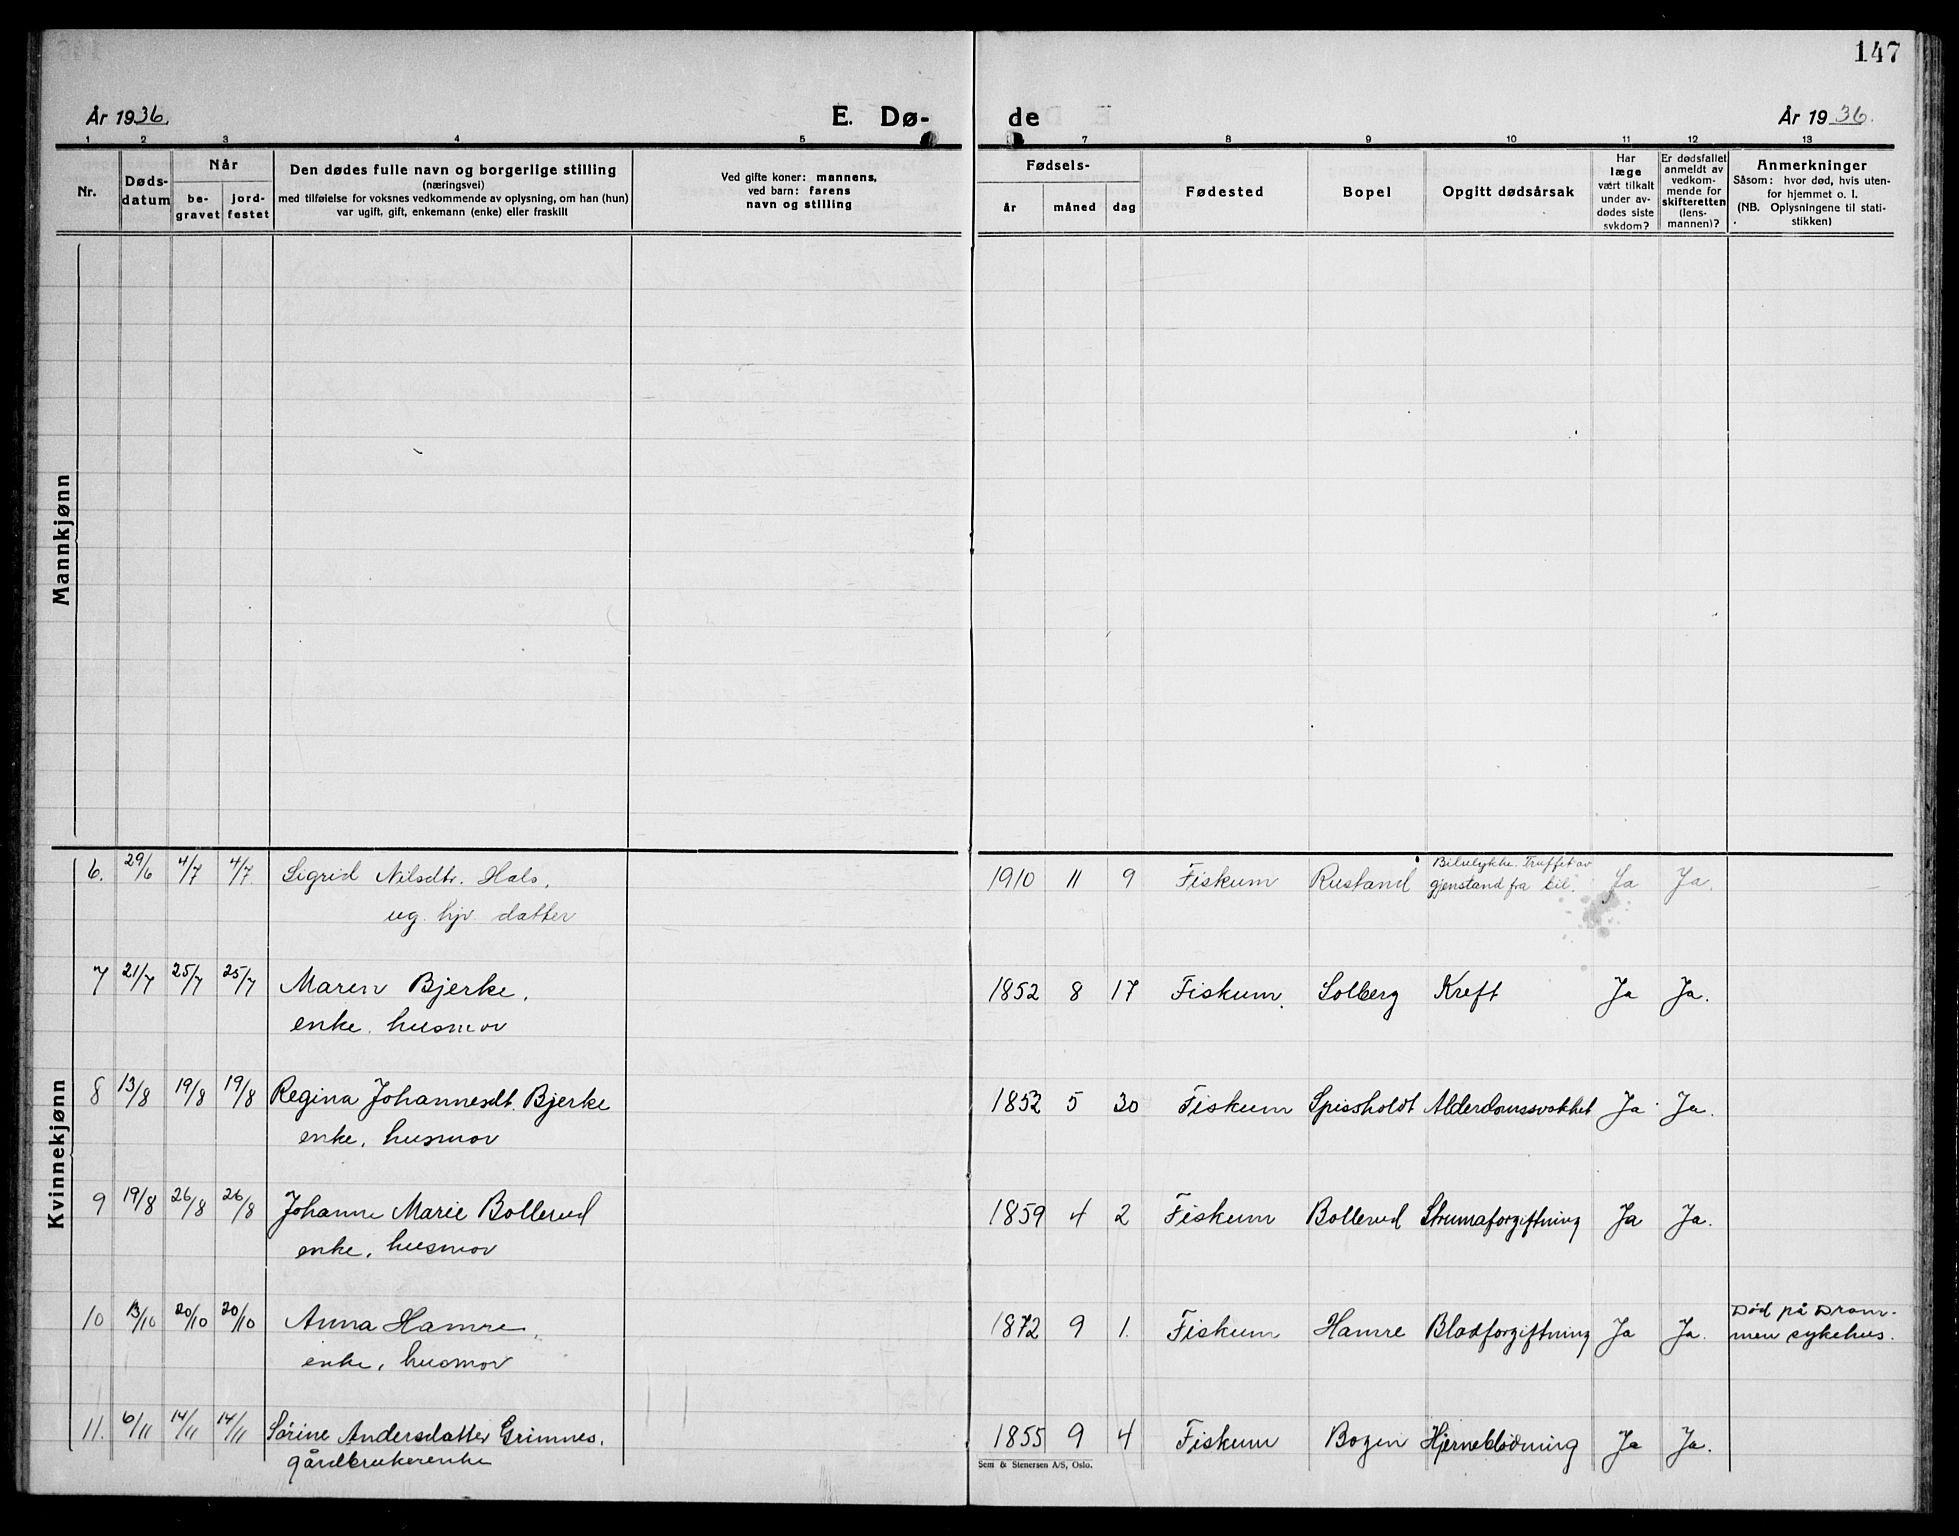 147
År 1936.
E. Dø-
de
År 1936.
1 2 3 4 5 7 8 9 10 11 12 13
Nr.
Døds-
datum
Når
be-
gravet
jord-
festet
Den dødes fulle navn og borgerlige stilling
(næringsvei)
med tilføielse for voksnes vedkommende av oplysning, om han (hun)
var ugift, gift, enkemann (enke) eller fraskill
Ved gifte koner: mannens,
ved barn: farens
navn og stilling
Fødsels-
år måned dag
Fødested
Bopel
Opgitt dødsårsak
Har
læge
vært tilkalt
under av-
dødes siste
sykdom?
Er dødsfallet
anmeldt av
vedkom-
mende for
skifteretten
(lens-
mannen)?
Anmerkninger
Såsom: hvor død, hvis uten-
for hjemmet o. l.
(NB. Oplysningene til stati-
stikken)
Mannkjønn
Kvinnekjønn
6. 29/6 4/7 4/7. Sigrid Nilsdtr. Hals, 1910 11 9 Fiskum Rustand Bilulykke. Truffet av
gjenstand fra bil. Ja Ja.
ug. hjv. datter
7 21/7 25/7 25/7 Maren Bjerke, 1852 8 17 Fiskum. Solberg Kreft Ja Ja.
enke. husmor
8 13/8 19/8 19/8 Regina Johannesdt. Bjerke 1852 5 30 Fiskum Spissholdt Alderdomssvakhet Ja Ja.
enke, husmor
9 19/8 26/8 26/8 Johanne Marie Bollerud 1859 4 2 Fiskum Bollerud Strumaforgiftning Ja Ja.
enke, husmor
10 13/10 20/10 20/10 Anna Hamre, 1872 9 1. Fiskum Hamre Blodforgiftning Ja Ja. Død på Dram-
men sykehus.
enke, husmor
11. 6/11 14/11 14/11 Sørine Andersdatter Grimnes, 1855 9 4 Fiskum Bogen Hjerneblødning Ja Ja.
gårdbrukerenke
Sem & Stenersen A/S, Oslo.